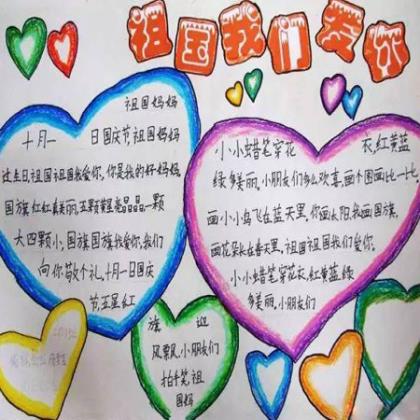 祖国我们爱你
祖国妈妈
十月一 日国庆节,祖国妈妈
过生日,祖国祖国我爱你,你是我的好妈妈
国旗红红真美丽,五颗星星晶晶,一颗
大四颗小,国旗国旗我爱你,我们
向你敬个礼,十月一日国庆
节,五星红
小小蜡笔穿花 衣,红黄蓝
绿多美丽,小朋友们多么欢喜,画个图画比一比,
画小小鸟飞在蓝天里,你画太阳,我画国旗,
画花朵长在春天里,祖国祖国我们爱你,
小小蜡笔穿花衣,红黄蓝绿
多美丽,小朋友们
旗 迎
风飘飘,小朋友们
拍手笑,祖
国妈